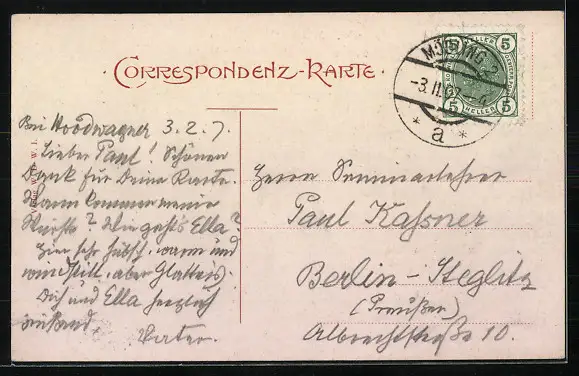 CORRESPONDENZ-KARTE
MÖDLING 2
-3.II.07
* a *
5 5
5 5
HELLER HELLER
Bei Hoodwagner 3.2.7.
Lieber Paul! Schönen
Dank für Deine Karte.
Wann kommen meine
? Wie geht's Ella?
Hier sehr hübsch, warm und
windstill, aber Glatteis.
Dich und Ella herzlich
grüßend
Vater.
Herrn Seminarlehrer
Paul Kaßner
Berlin-Steglitz
(Preußen)
Albrechtstraße 10.
W. I.